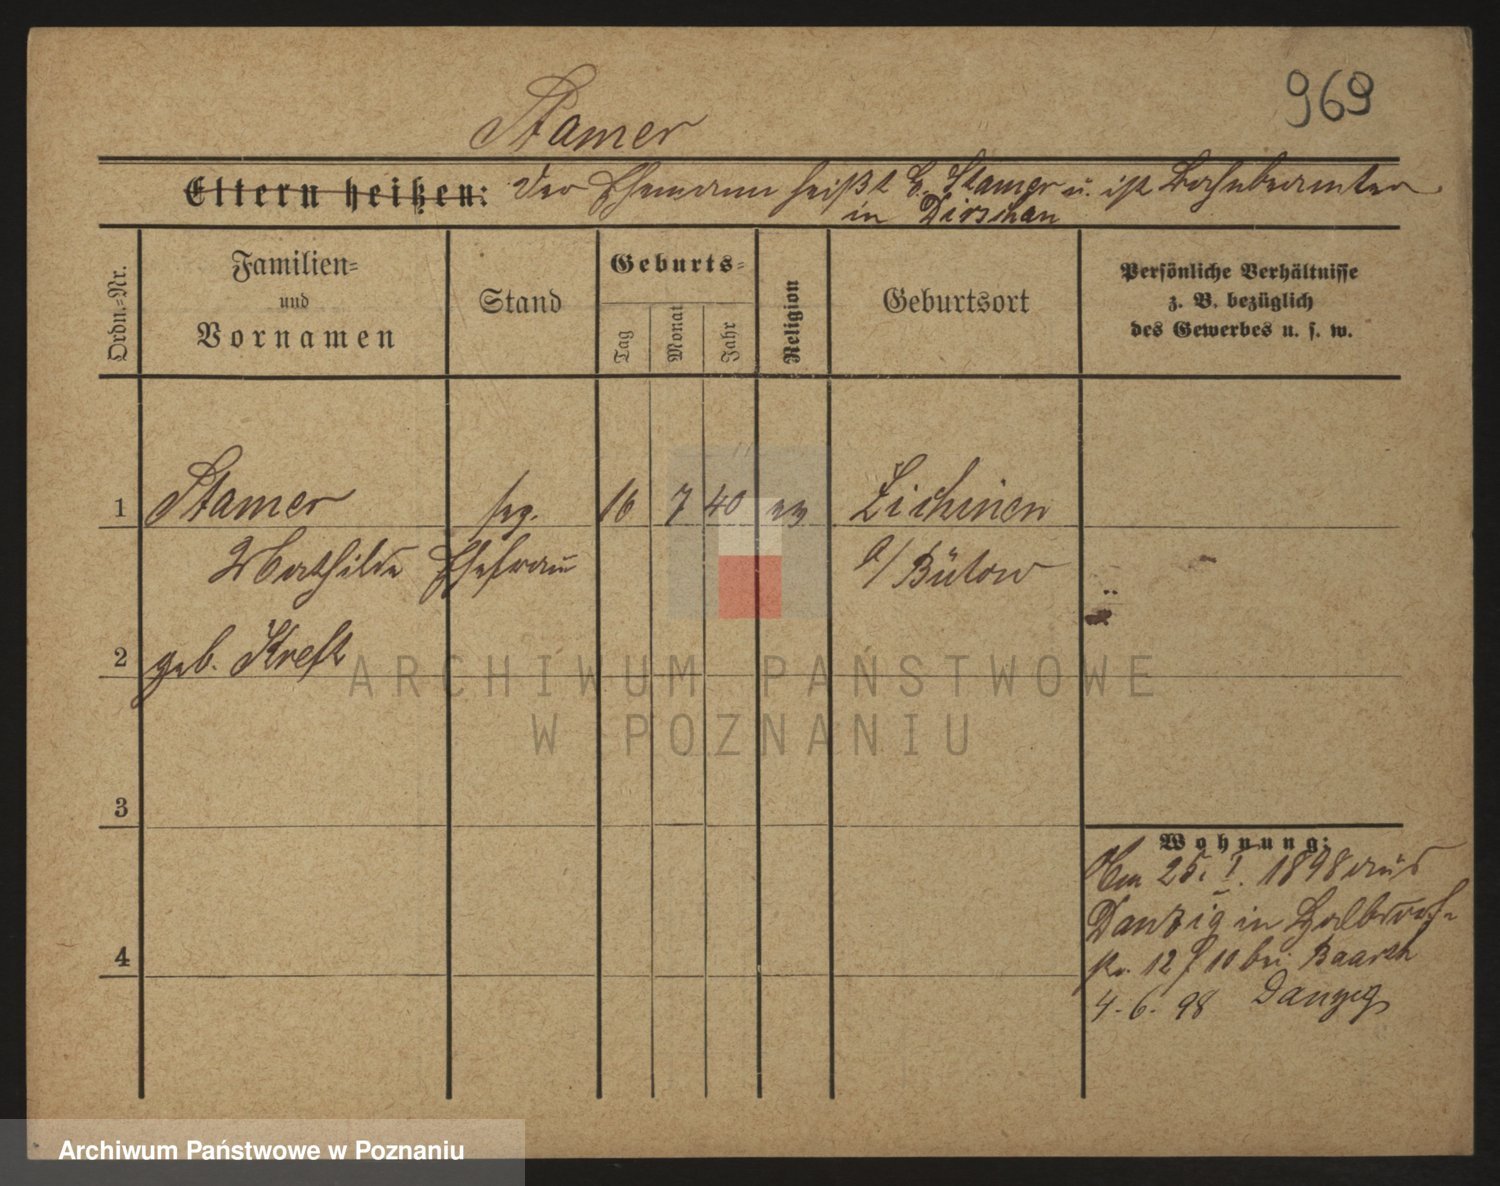 969
Stamer
Eltern heißen: Der Ehemann heißt E. Stamer u. ist Bahnbeamter
in Dirschau
Ordn.-Nr.
Familien-
und
Vornamen
Stand
Geburts-
Tag
Monat
Jahr
Religion
Geburtsort
Persönliche Verhältnisse
z. B. bezüglich
des Gewerbes u. s. w.
1 Stamer 16 7 40 ev
Mathilde Ehefrau a/ Bütow
2 geb. Kreft
3
4
Wohnung:
Am 25. I. 1898 aus
Danzig in Halbdorf-
str. 12 bei
4.-6. 98 Danzig
ARCHIWUM PAŃSTWOWE
W POZNANIU
Archiwum Państwowe w Poznaniu